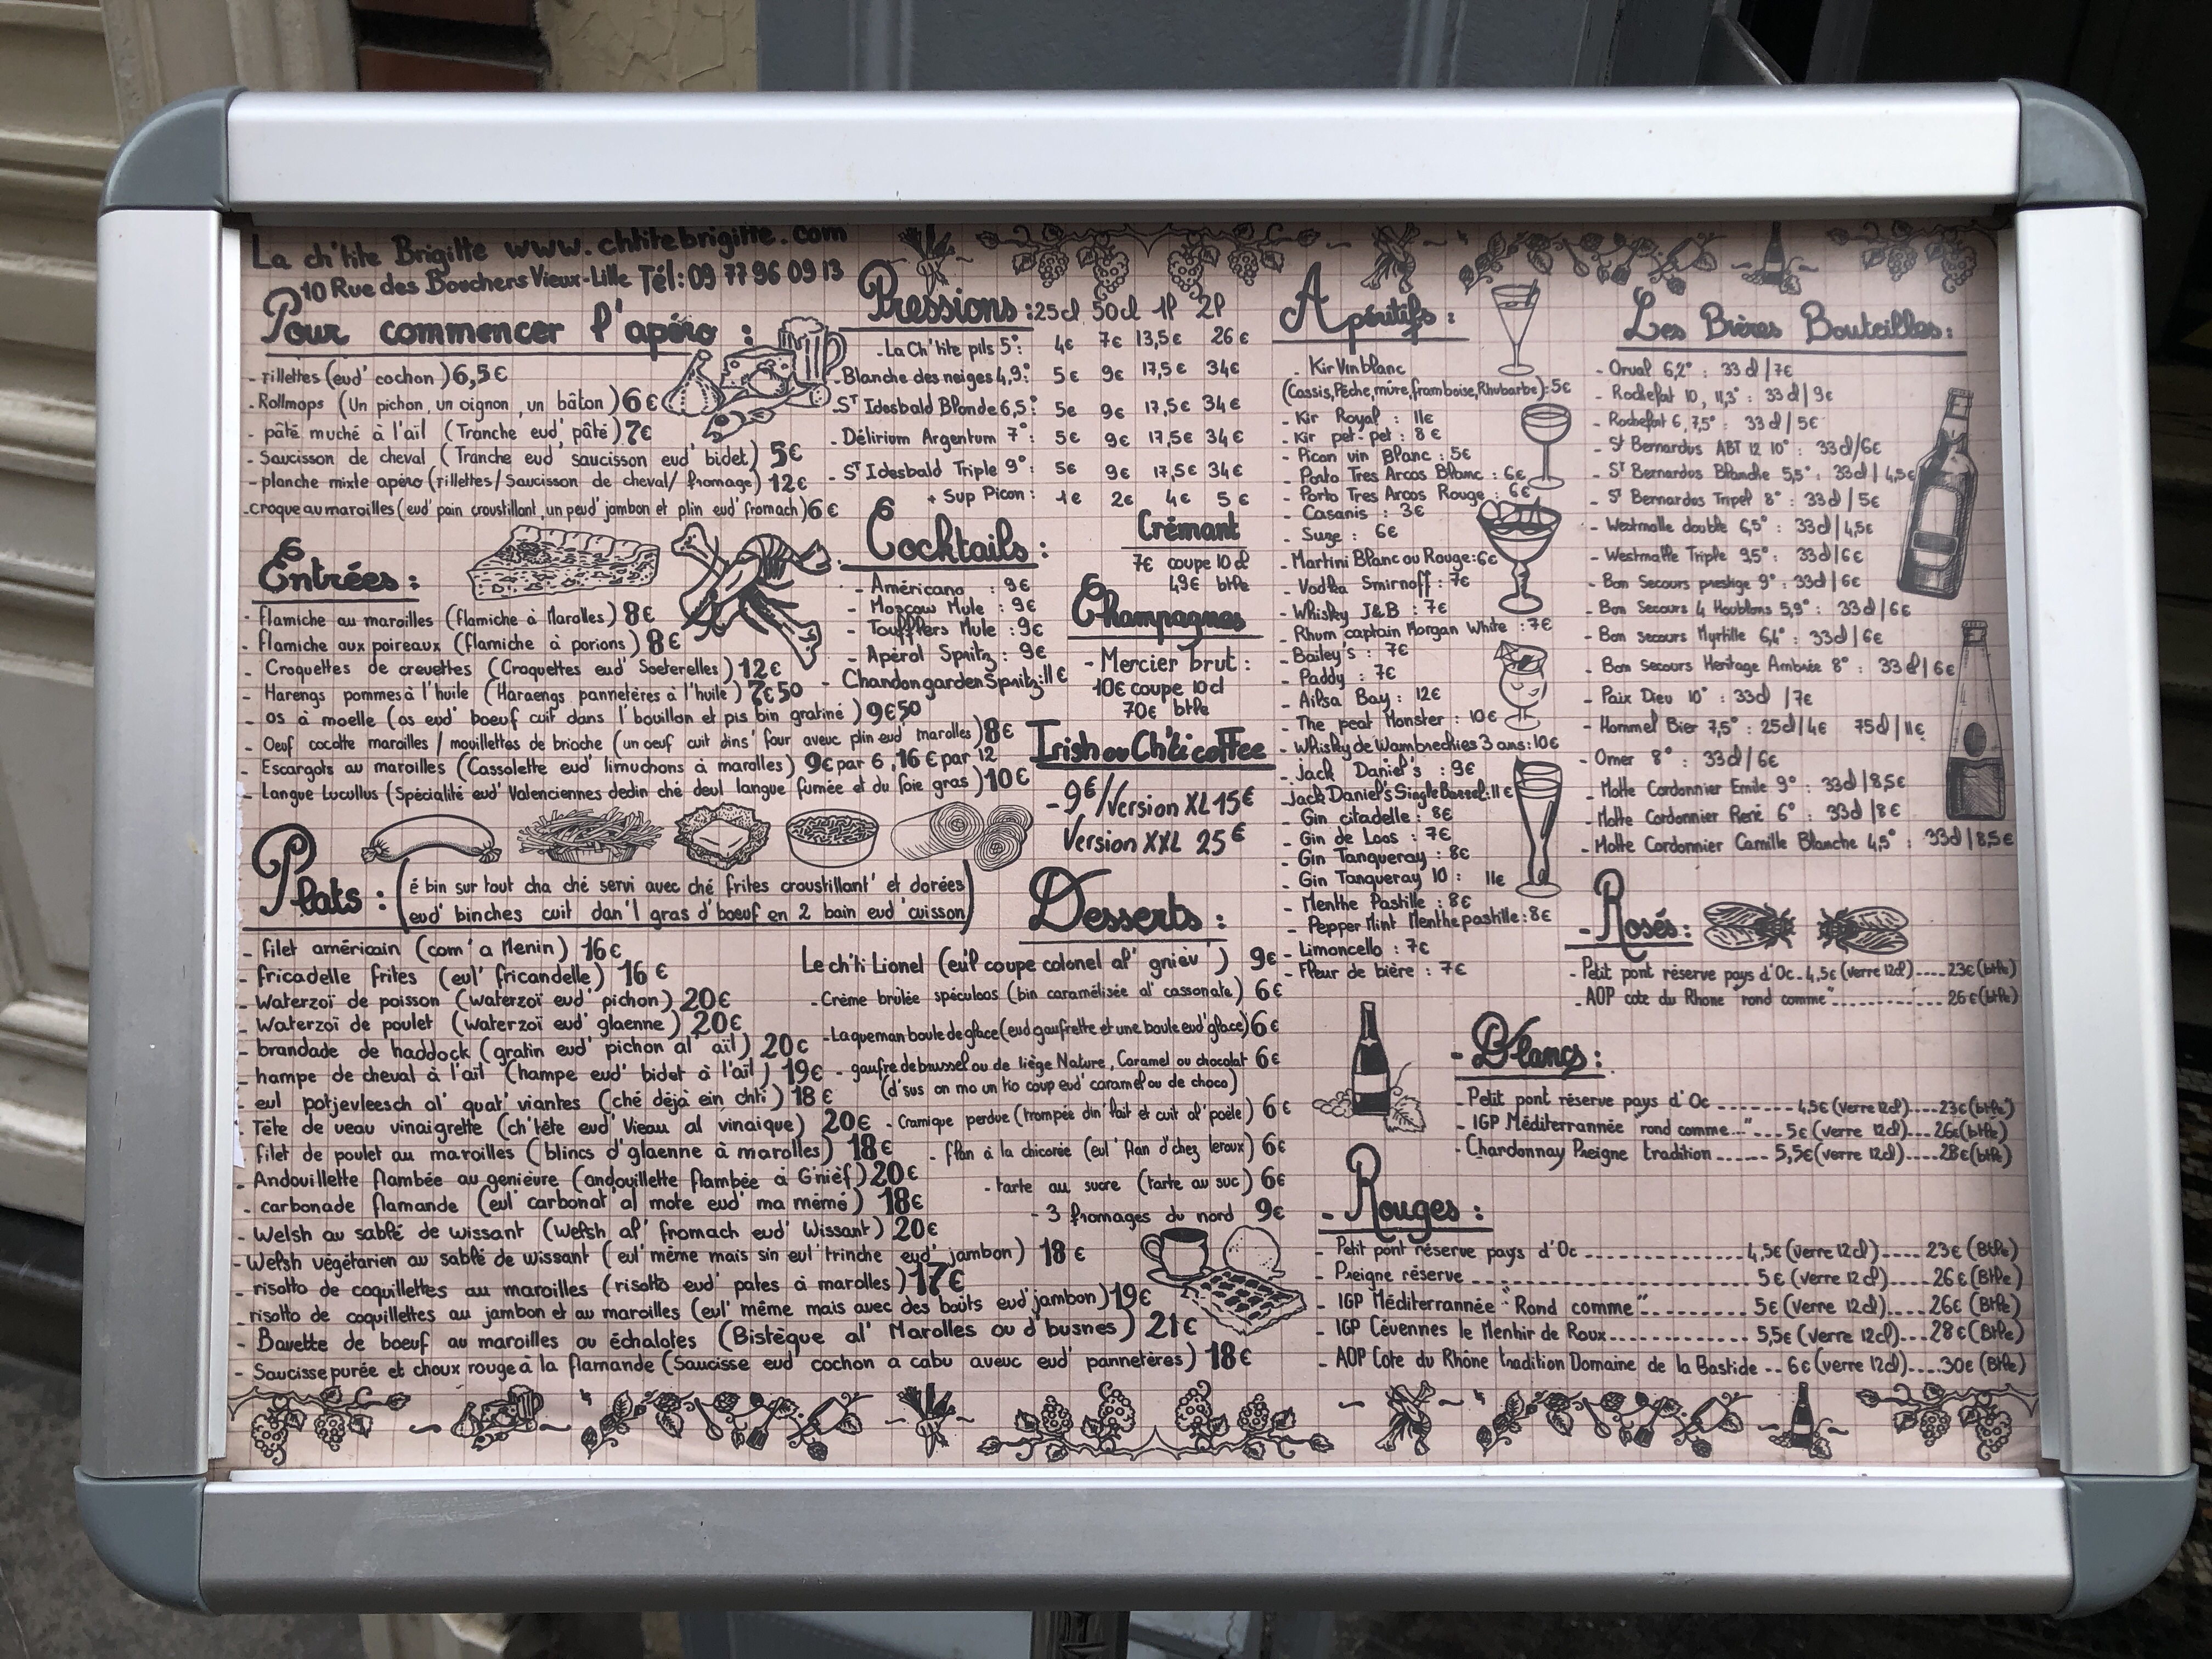 La ch'tite Brigitte www.chtitebrigitte.com
10 Rue des Bouchers Vieux-Lille Tél: 09 77 96 09 13
Pour commencer l'apéro :
- rillettes (eud' cochon) 6,5€
- Rollmops (Un pichon, un oignon, un bâton) 6€
- pâté muché à l'ail (Tranche eud' pâté) 7€
- Saucisson de cheval (Tranche eud' saucisson eud' bidet) 5€
- planche mixte apéro (rillettes/ Saucisson de cheval/ fromage) 12€
- croque au maroilles (eud' pain croustillant, un peud' jambon et plin eud' fromach) 6€
Entrées :
- flamiche au maroilles (flamiche à Marolles) 8€
- flamiche aux poireaux (flamiche à porions) 8€
- Croquettes de crevettes (Croquettes eud' Soeterelles) 12€
- Harengs pommes à l'huile (Haraengs pannetères à l'huile) 7€50
- os à moelle (os eud' boeuf cuit dans l'bouillon et pis bin gratiné) 9€50
- Oeuf cocotte maroilles / mouillettes de brioche (un oeuf cuit dins' four aveuc plin eud' marolles) 8€
- Escargots au maroilles (Cassolette eud' limuchons à marolles) 9€ par 6, 16€ par 12
- Langue Lucullus (Spécialité eud' Valenciennes dedin ché deul langue fumée et du foie gras) 10€
Plats : (é bin sur tout cha ché servi avec ché frites croustillant' et dorées
eud' binches cuit dan'l gras d'boeuf en 2 bain eud' cuisson)
- filet américain (com' a Menin) 16€
- fricadelle frites (eul' fricandelle) 16€
- Waterzoï de poisson (waterzoï eud' pichon) 20€
- Waterzoï de poulet (waterzoï eud' glaenne) 20€
- brandade de haddock (gratin eud' pichon al' ail) 20€
- hampe de cheval à l'ail (hampe eud' bidet à l'ail) 19€
- eul potjevleesch al' quat' viantes (ché déjà ein chti) 18€
- Tête de veau vinaigrette (ch'tête eud' Vieau al vinaique) 20€
- filet de poulet au maroilles (blincs d'glaenne à marolles) 18€
- Andouillette flambée au genièvre (andouillette flambée à G'nièf) 20€
- carbonade flamande (eul' carbonat' al mote eud' ma mémé) 18€
- Welsh au sablé de wissant (Welsh al' fromach eud' Wissant) 20€
- Welsh végétarien au sablé de wissant (eul' même mais sin eul' trinche eud' jambon) 18€
- risotto de coquillettes au maroilles (risotto eud' pates à marolles) 17€
- risotto de coquillettes au jambon et au maroilles (eul' même mais avec des boûts eud' jambon) 19€
- Bavette de boeuf au maroilles ou échalotes (Bistèque al' Marolles ou d'busnes) 21€
- Saucisse purée et choux rouge à la flamande (Saucisse eud' cochon a cabu aveuc eud' pannetères) 18€
Pressions : 25cl 50cl 1l 2l
- La Ch'tite pils 5°: 4€ 7€ 13,5€ 26€
- Blanche des neiges 4,9°: 5€ 9€ 17,5€ 34€
- ST Idesbald Blonde 6,5°: 5€ 9€ 17,5€ 34€
- Délirium Argentum 7°: 5€ 9€ 17,5€ 34€
- ST Idesbald Triple 9°: 5€ 9€ 17,5€ 34€
+ Sup Picon : 1€ 2€ 4€ 5€
Cocktails :
- Américano : 9€
- Moscow Mule : 9€
- Toufflers Mule : 9€
- Apérol Spritz : 9€
- Chandon garden Spritz : 11€
Crémant
7€ coupe 10cl
49€ btlle
Champagnes
- Mercier brut :
10€ coupe 10cl
70€ btlle
Irish ou Ch'ti coffee
- 9€/Version XL 15€
Version XXL 25€
Desserts :
Le ch'ti Lionel (eul' coupe colonel al' gniev') 9€
- Crème brûlée spéculoos (bin caramélisée al' cassonate) 6€
- La queman boule de glace (eud gaufrette et une boule eud' glace) 6€
- gaufre de brussel ou de liège Nature, Caramel ou chocolat 6€
(d'sus on mo un tio coup eud' caramel ou de choco)
- Cramique perdue (trompée din' lait et cuit al' poèle) 6€
- flan à la chicorée (eul' flan d'chez leroux) 6€
- tarte au sucre (tarte au suc) 6€
- 3 fromages du nord 9€
Apéritifs :
- Kir Vin blanc
(Cassis, Pêche, mûre, framboise, Rhubarbe) : 5€
- Kir Royal : 11€
- Kir pet-pet : 8€
- Picon vin Blanc : 5€
- Porto Tres Arcos Blanc : 6€
- Porto Tres Arcos Rouge : 6€
- Casanis : 3€
- Suze : 6€
- Martini Blanc ou Rouge : 6€
- Vodka Smirnoff : 7€
- Whisky J&B : 7€
- Rhum captain Morgan White : 7€
- Bailey's : 7€
- Paddy : 7€
- Ailsa Bay : 12€
- The peat Monster : 10€
- Whisky de Wambrechies 3 ans : 10€
- Jack Daniel's : 9€
- Jack Daniel's Single Barrel : 11€
- Gin citadelle : 8€
- Gin de Loos : 7€
- Gin Tanqueray : 8€
- Gin Tanqueray 10 : 11€
- Menthe Pastille : 8€
- Pepper Mint Menthe pastille : 8€
- Limoncello : 7€
- Fleur de bière : 7€
Les Bières Bouteilles :
- Orval 6,2° : 33cl /7€
- Rochefort 10, 11,3° : 33cl / 9€
- Rochefort 6, 7,5° : 33cl / 5€
- St Bernardus ABT 12 10° : 33cl/6€
- ST Bernardus Blanche 5,5° : 33cl / 4,5€
- ST Bernardus Tripel 8° : 33cl / 5€
- Westmalle double 6,5° : 33cl / 4,5€
- Westmalle Triple 9,5° : 33cl / 6€
- Bon Secours prestige 9° : 33cl / 6€
- Bon Secours 4 Houblons 5,9° : 33cl / 6€
- Bon secours Myrtille 6,4° : 33cl / 6€
- Bon secours Heritage Ambrée 8° : 33cl / 6€
- Paix Dieu 10° : 33cl /7€
- Hommel Bier 7,5° : 25cl/4€ 75cl / 11€
- Omer 8° : 33cl /6€
- Motte Cordonnier Emile 9° : 33cl / 8,5€
- Motte Cordonnier René 6° : 33cl / 8€
- Motte Cordonnier Camille Blanche 4,5° : 33cl / 8,5€
- Rosés :
- Petit pont réserve pays d'Oc - 4,5€ (verre 12cl) ---- 23€ (btlle)
- AOP cote du Rhone "rond comme" ---------- 26€ (btlle)
- Blancs :
- Petit pont réserve pays d'Oc ------- 4,5€ (verre 12cl) ---- 23€ (btlle)
- IGP Méditerrannée "rond comme..." --- 5€ (verre 12cl) --- 26€ (btlle)
- Chardonnay Preigne tradition ----- 5,5€ (verre 12cl) ---- 28€ (btlle)
- Rouges :
- Petit pont réserve pays d'Oc -------------- 4,5€ (verre 12cl) ---- 23€ (Btlle)
- Preigne réserve ---------------------- 5€ (verre 12 cl) ---- 26€ (Btlle)
- IGP Méditerrannée "Rond comme" --------- 5€ (verre 12cl) ---- 26€ (Btlle)
- IGP Cévennes le Menhir de Roux ------------ 5,5€ (verre 12cl) --- 28€ (Btlle)
- AOP Cote du Rhône tradition Domaine de la Bastide -- 6€ (verre 12cl) ---- 30€ (Btlle)